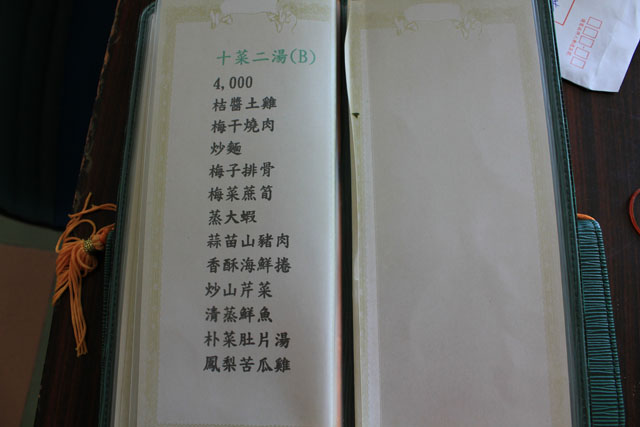 十菜二湯(B)
4,000
桔醬土雞
梅干燒肉
炒麵
梅子排骨
梅菜蔗筍
蒸大蝦
蒜苗山豬肉
香酥海鮮捲
炒山芹菜
清蒸鮮魚
朴菜肚片湯
鳳梨苦瓜雞